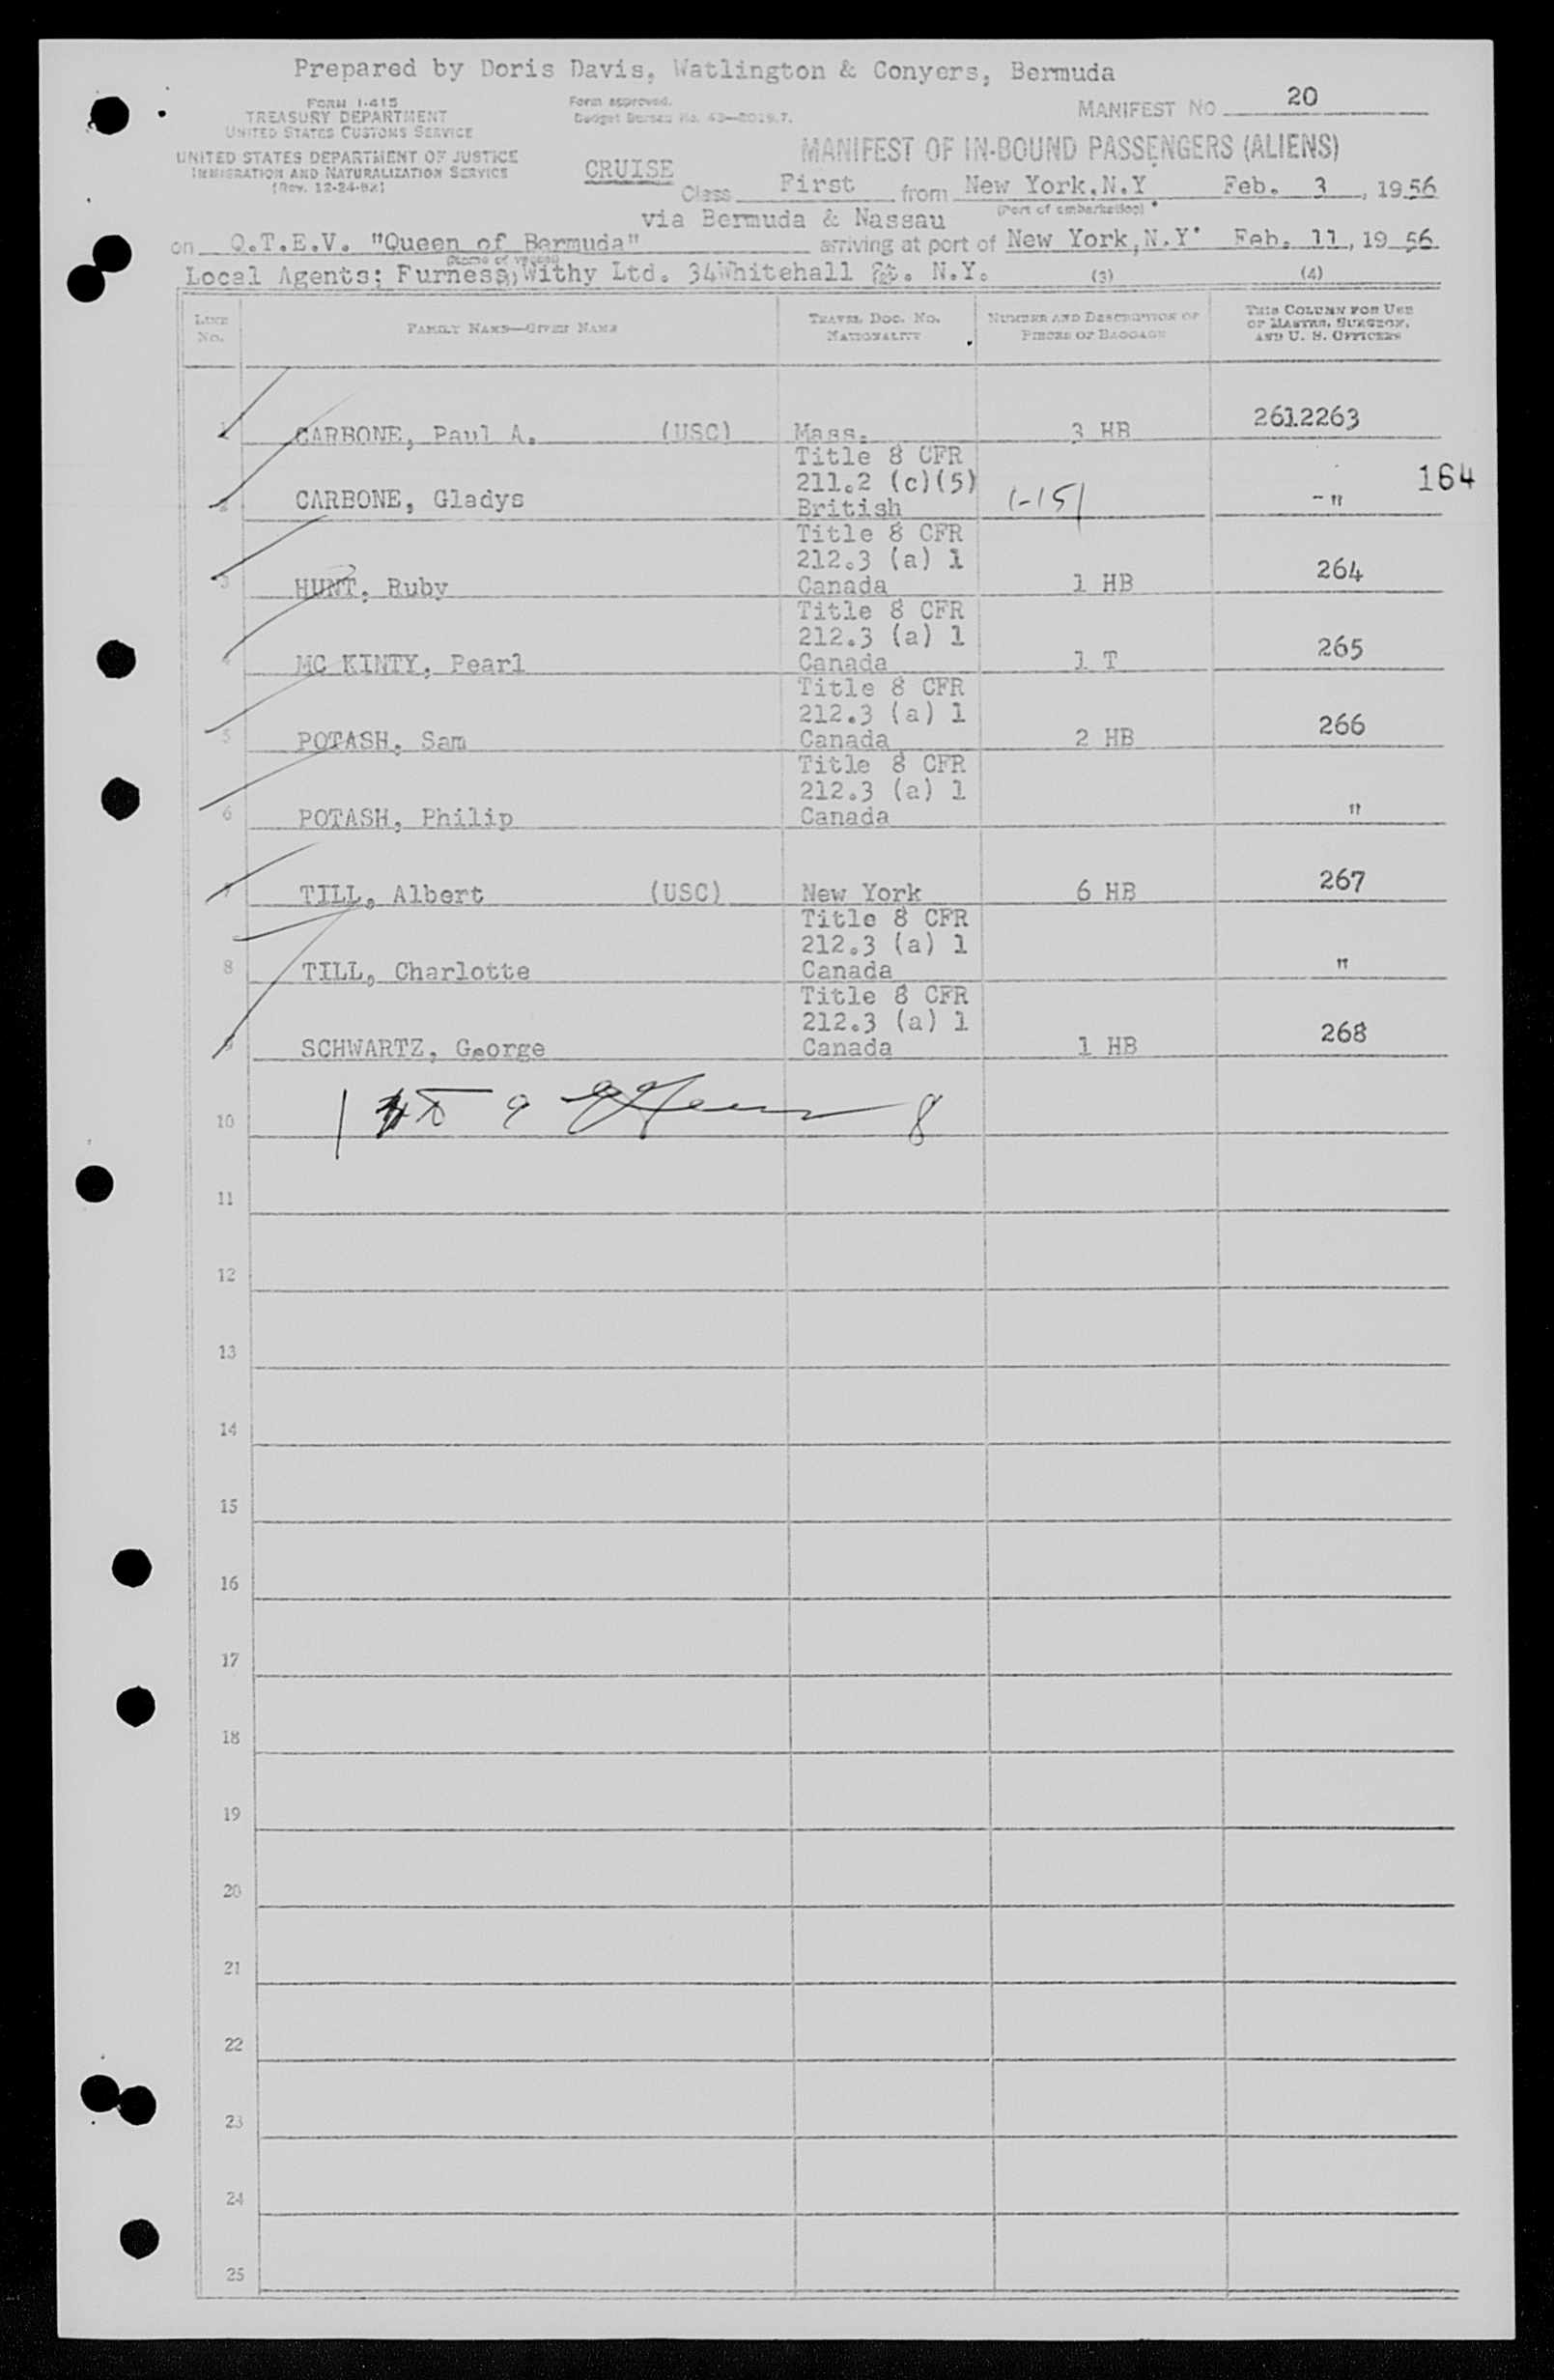 Prepared by Doris Davis, Watlington & Conyers, Bermuda
FORM I-415
TREASURY DEPARTMENT
UNITED STATES CUSTOMS SERVICE
Form approved.
Budget Bureau No. 43—R019.7.
MANIFEST NO 20
UNITED STATES DEPARTMENT OF JUSTICE
IMMIGRATION AND NATURALIZATION SERVICE
(Rev. 12-24-52)
MANIFEST OF IN-BOUND PASSENGERS (ALIENS)
CRUISE Class First from New York, N.Y. Feb. 3, 1956
(Port of embarkation)
via Bermuda & Nassau
on Q.T.E.V. "Queen of Bermuda" arriving at port of New York, N.Y. Feb. 11, 1956
(Name of vessel)
Local Agents: Furness, Withy Ltd. 34 Whitehall St. N.Y. (3) (4)
LINE No. FAMILY NAME—GIVEN NAME TRAVEL DOC. NO. NATIONALITY NUMBER AND DESCRIPTION OF PIECES OF BAGGAGE THIS COLUMN FOR USE OF MASTER, SURGEON, AND U. S. OFFICERS
1 CARBONE, Paul A. (USC) Mass. 3 HB 2612263
Title 8 CFR
211.2 (c)(5) 164
2 CARBONE, Gladys British 1-151 -"
Title 8 CFR
212.3 (a) 1
3 HUNT, Ruby Canada 1 HB 264
Title 8 CFR
212.3 (a) 1
4 MC KINTY, Pearl Canada 1 T 265
Title 8 CFR
212.3 (a) 1
5 POTASH, Sam Canada 2 HB 266
Title 8 CFR
212.3 (a) 1
6 POTASH, Philip Canada "
7 TILL, Albert (USC) New York 6 HB 267
Title 8 CFR
212.3 (a) 1
8 TILL, Charlotte Canada "
Title 8 CFR
212.3 (a) 1
9 SCHWARTZ, George Canada 1 HB 268
10 8
11
12
13
14
15
16
17
18
19
20
21
22
23
24
25